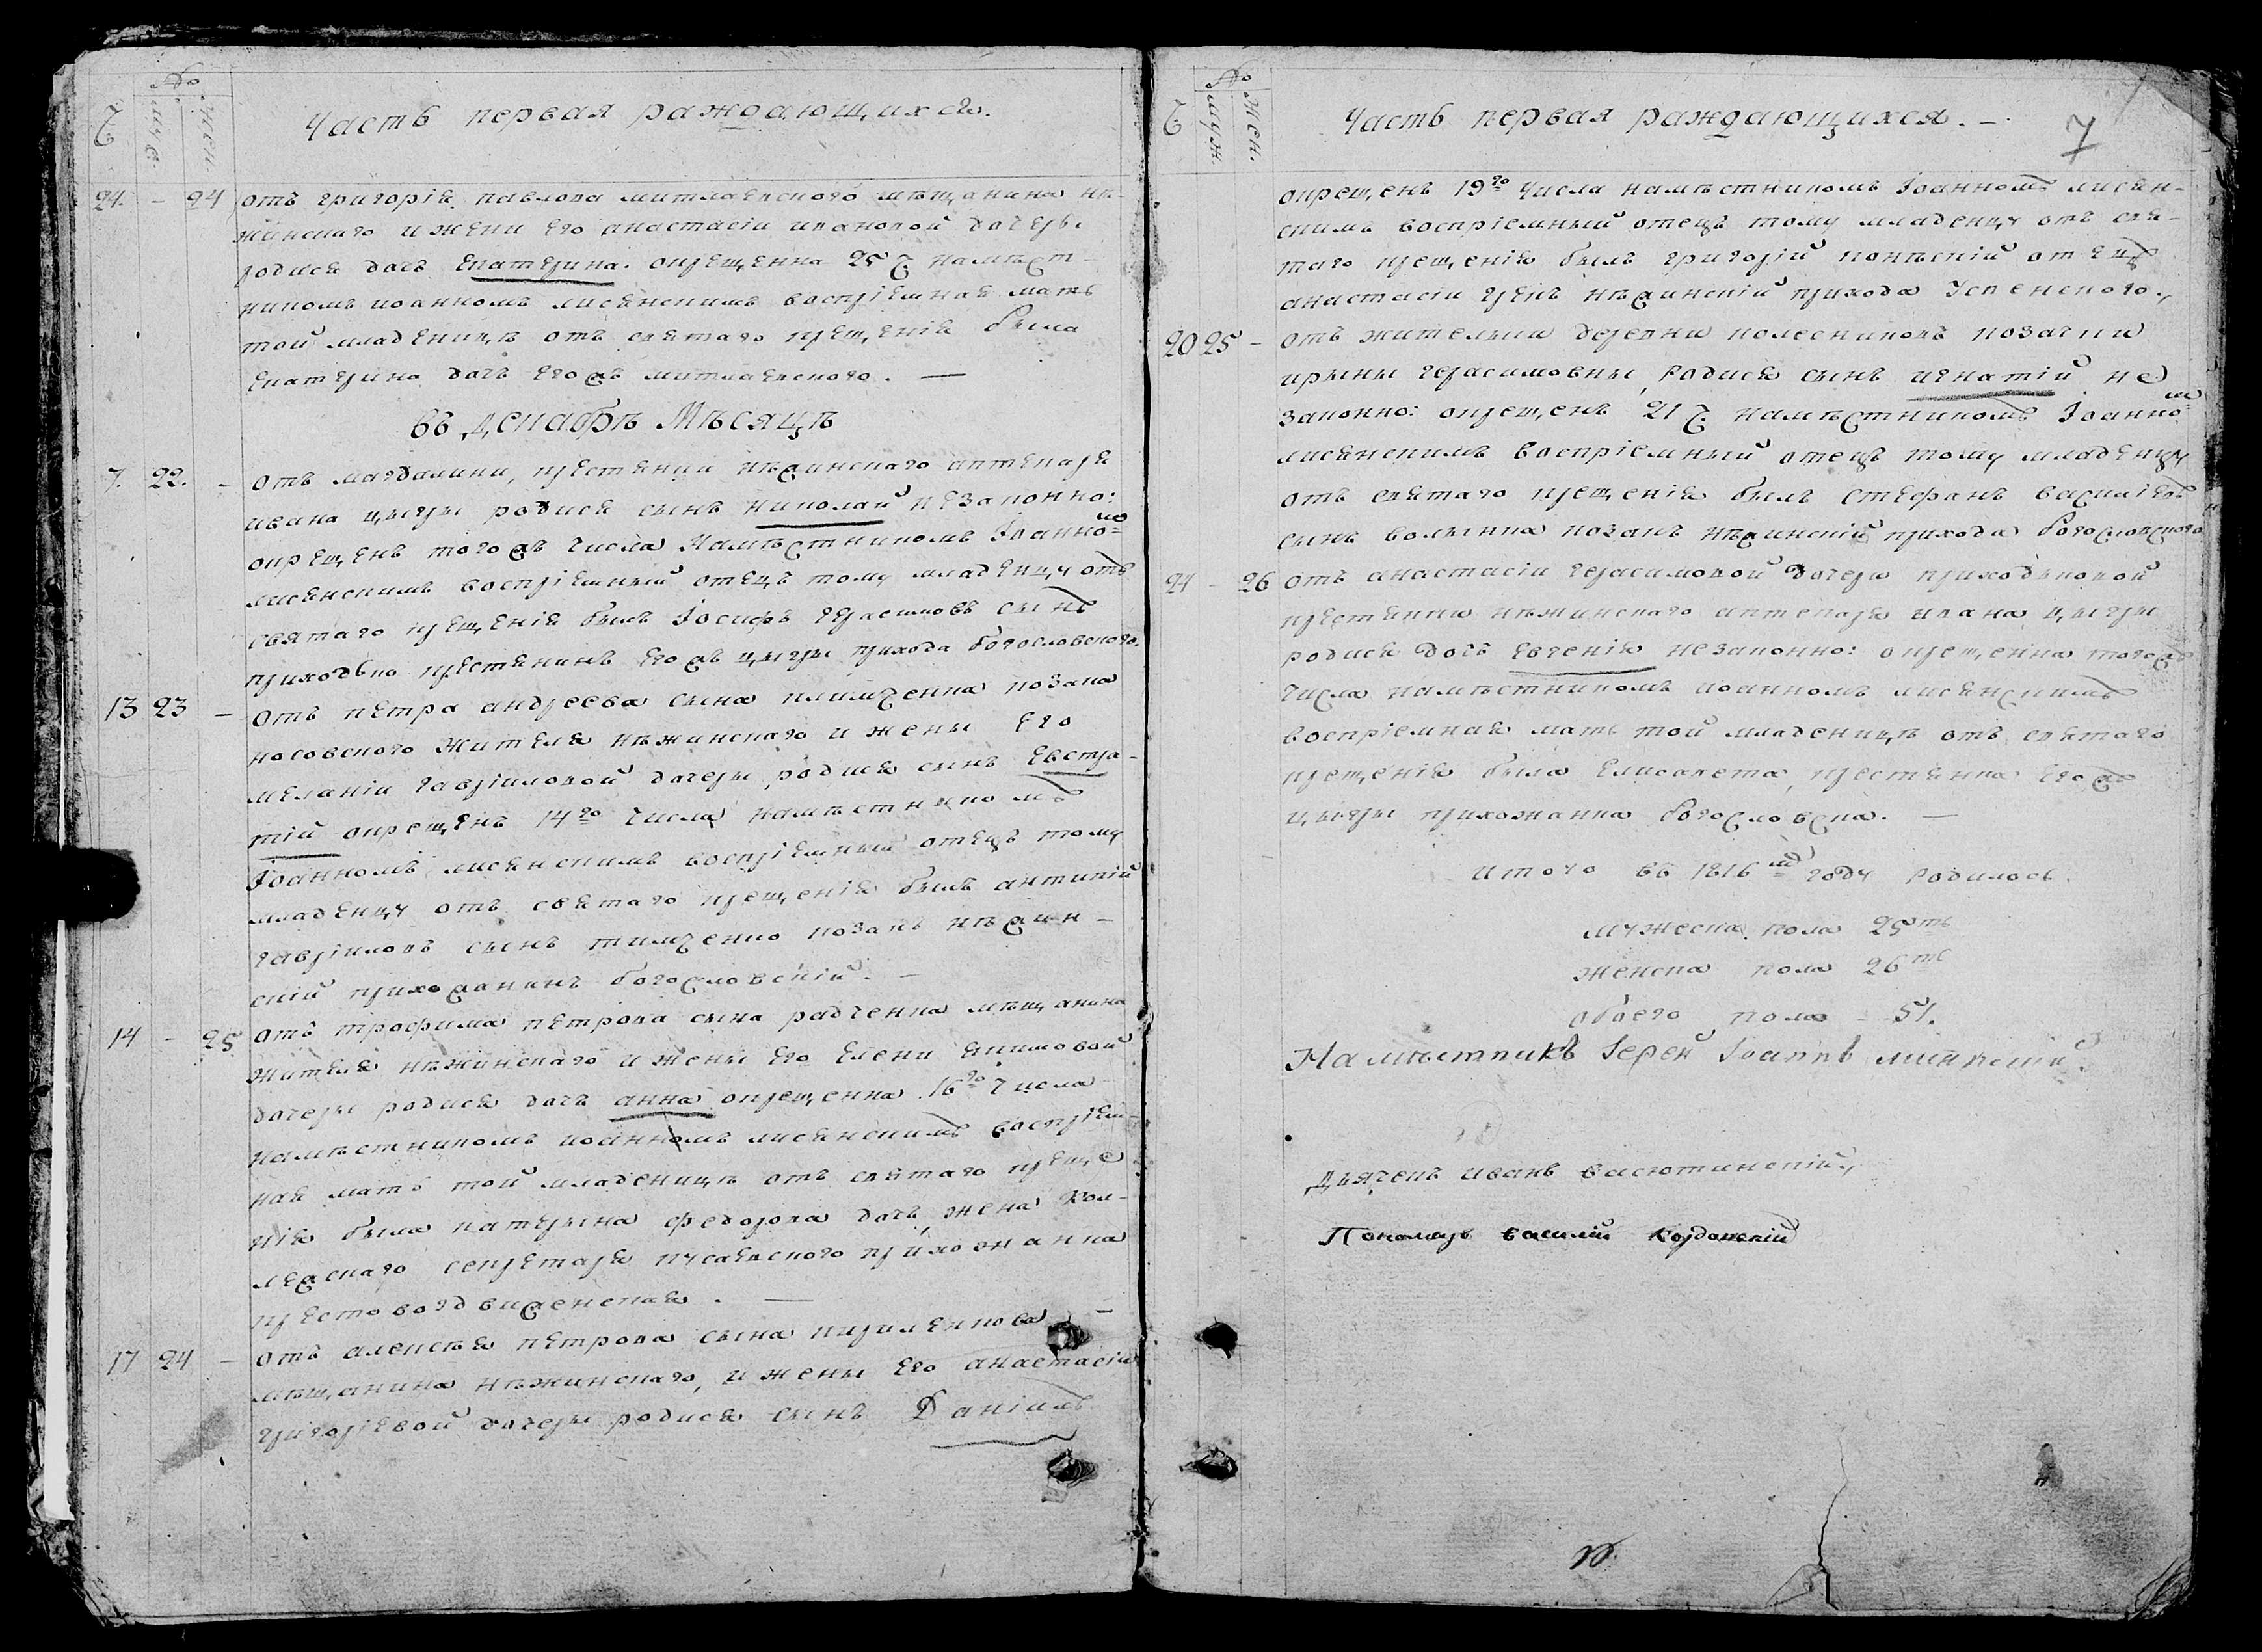 №
Ч муж. жен.
Часть первая раждающихся.
24. – 24 отъ григорія павлова митлаевского мѣщанина нѣ-
жинского и жени его анастасіи ивановой дочеры
родися дочь екатерина. окрещенна 25 ч намѣст-
никомъ иоанномъ лисянскимъ воспріемная мать
той младеницѣ отъ святаго крещенія была
екатерина дочь егожъ митлаевского. —
въ декабрѣ мѣсяцѣ
7. 22. – отъ магдалини, крестянки нѣжинского аптекаря
ивана цигры родися сынъ николай незаконно:
окрещенъ тогожъ числа намѣстникомъ Іоанно м
лисянскимъ воспріемный отецъ тому младенцу отъ
святаго крещенія былъ Іосифъ герасимовъ сынъ
приходько крестянинъ егожъ цигры прихода богословского.
13 23 – отъ петра андреева сына климченка козака
носовского жителя нѣжинского и жены его
меланіи гавріиловой дочеры родися сынъ евстра-
тій окрещенъ 14го числа намѣстникомъ
Іоанномъ лисянскимъ воспріемный отецъ тому
младенцу отъ святаго крещенія былъ антипій
гавріиловъ сынъ тимченко козакъ нѣжин-
скій прихожанинъ богословскій. –
14 – 25 отъ трофима петрова сына радченка мѣщанина
жителя нѣжинского и жены его елени якимовой
дочеры родися дочь анна окрещенна 16го числа
намѣстникомъ иоанномъ лисянскимъ воспріем-
ная мать той младеницѣ отъ святаго креще
нія была катерина федорова дочь, жена кол-
лежского секретаря кусаевского прихожанка
крестовоздвиженская. —
17 24 – отъ алексѣя петрова сына кириленкова –
мѣщанина нѣжинского, и жены его анастасіи
григоріевой дочеры родися сынъ Даніилъ
№
Ч муж. жен.
Часть первая раждающихся. –
7
окрещенъ 19го числа намѣстникомъ Іоанномъ лисян-
скимъ воспріемный отецъ тому младенцу отъ свя-
таго крещенія былъ григорій отецъ
анастасіи грекъ нѣжинскій прихода Успенского.,
20 25 – отъ жителки деревни колесниковъ козачки
ирыны герасимовны, родися сынъ игнатій не
законно: окрещенъ 21 ч намѣстникомъ Іоанно м
лисянскимъ воспріемный отецъ тому младенцу
отъ святаго крещенія былъ стефанъ василіевъ
сынъ волынка козакъ нѣжинскій прихода богословского
24 – 26 отъ анастасіи герасимовой дочери приходьковой
крестянки нѣжинского аптекаря ивана цигры
родися дочь евгенія незаконно: окрещенна тогожъ
числа намѣстникомъ иоанномъ лисянскимъ
воспріемная мать той младеницѣ отъ святаго
крещенія была елисавета, крестянка егожъ
цигры прихожанка богословска. —
итого въ 1816м году родилось.
мужеска пола 25ть
женска пола 26ть
обоего пола – 51.
Намѣстникъ Іерей Іоаннъ лисянскій
Дьячекъ иванъ васютинскій.,
Пономарь василій